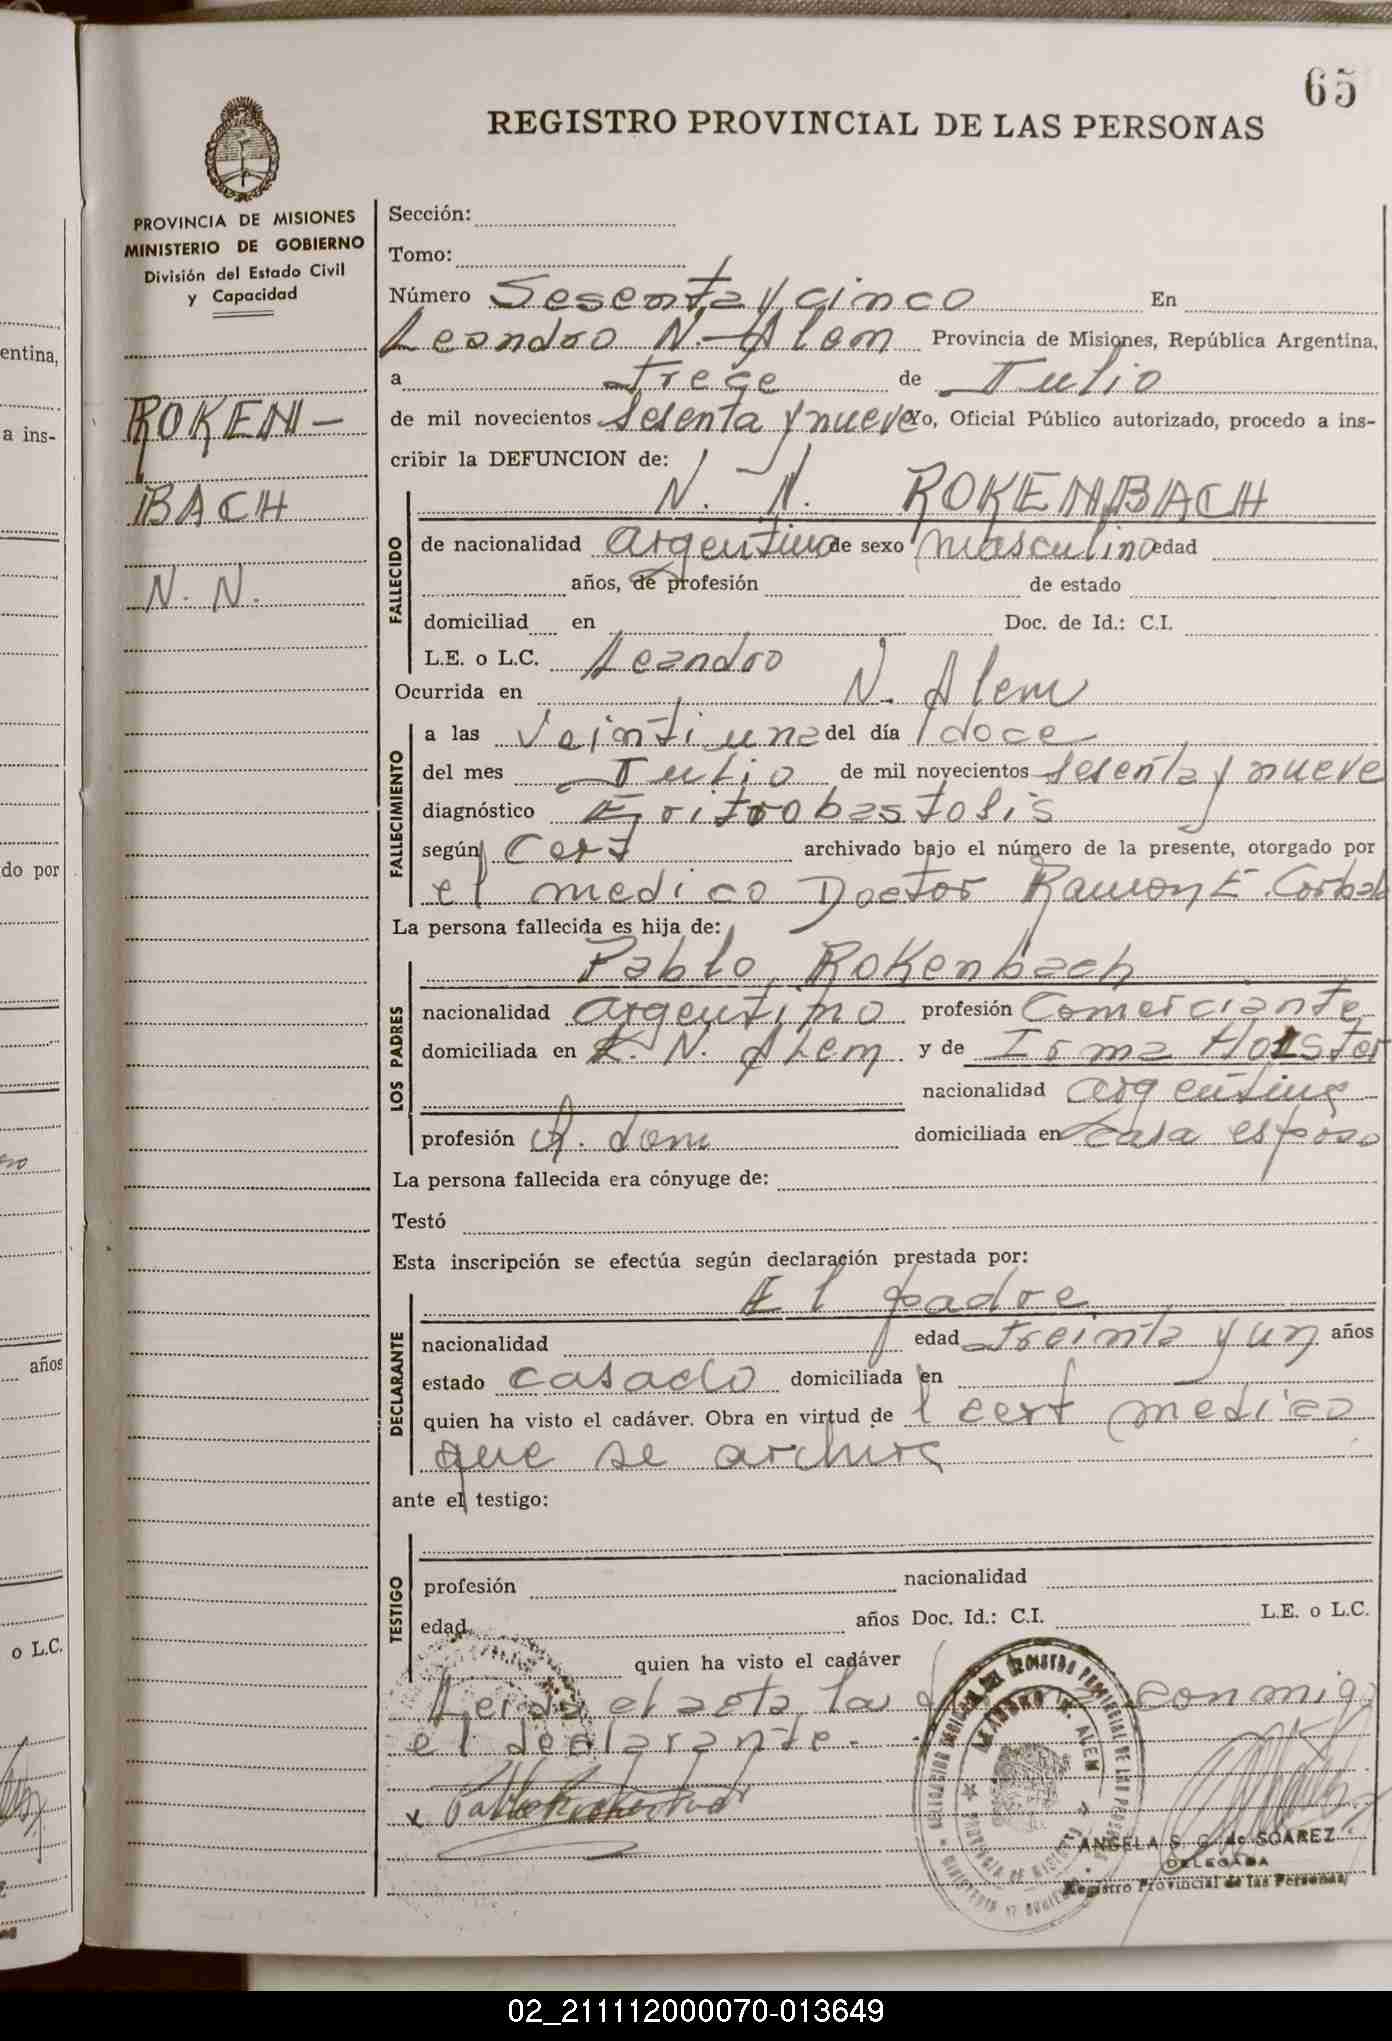 65
REGISTRO PROVINCIAL DE LAS PERSONAS
PROVINCIA DE MISIONES
MINISTERIO DE GOBIERNO
División del Estado Civil
y Capacidad
ROKEN-
BACH
N. N.
Sección:
Tomo:
Número Sesenta y cinco En
Leandro N. Alem Provincia de Misiones, República Argentina,
a trece de Julio
de mil novecientos sesenta y nueve Yo, Oficial Público autorizado, procedo a ins-
cribir la DEFUNCION de:
N. N. ROKENBACH
FALLECIDO
de nacionalidad argentino de sexo masculino edad
años, de profesión de estado
domiciliad en Doc. de Id.: C.I.
L.E. o L.C. Leandro
Ocurrida en N. Alem
FALLECIMIENTO
a las veintiuna del día doce
del mes Julio de mil novecientos sesenta y nueve
diagnóstico Eritrobastosis
según Cert archivado bajo el número de la presente, otorgado por
el medico Doctor Ramon E.
La persona fallecida es hija de:
Pablo Rokenbach
LOS PADRES
nacionalidad argentino profesión Comerciante
domiciliada en L. N. Alem y de Irma Holster
nacionalidad argentina
profesión A. dom domiciliada en casa esposo
La persona fallecida era cónyuge de:
Testó
Esta inscripción se efectúa según declaración prestada por:
El padre
DECLARANTE
nacionalidad edad treinta y un años
estado casado domiciliada en
quien ha visto el cadáver. Obra en virtud de l cert medico
que se archiva
ante el testigo:
TESTIGO
profesión nacionalidad
edad años Doc. Id.: C.I. L.E. o L.C.
quien ha visto el cadáver
Leida el acta la conmigo
el declarante.
LEANDRO N. ALEM
ANGELA S. G. de SOAREZ
DELEGADA
Registro Provincial de las Personas
entina,
a ins-
do por
años
o L.C.
02_211112000070-013649